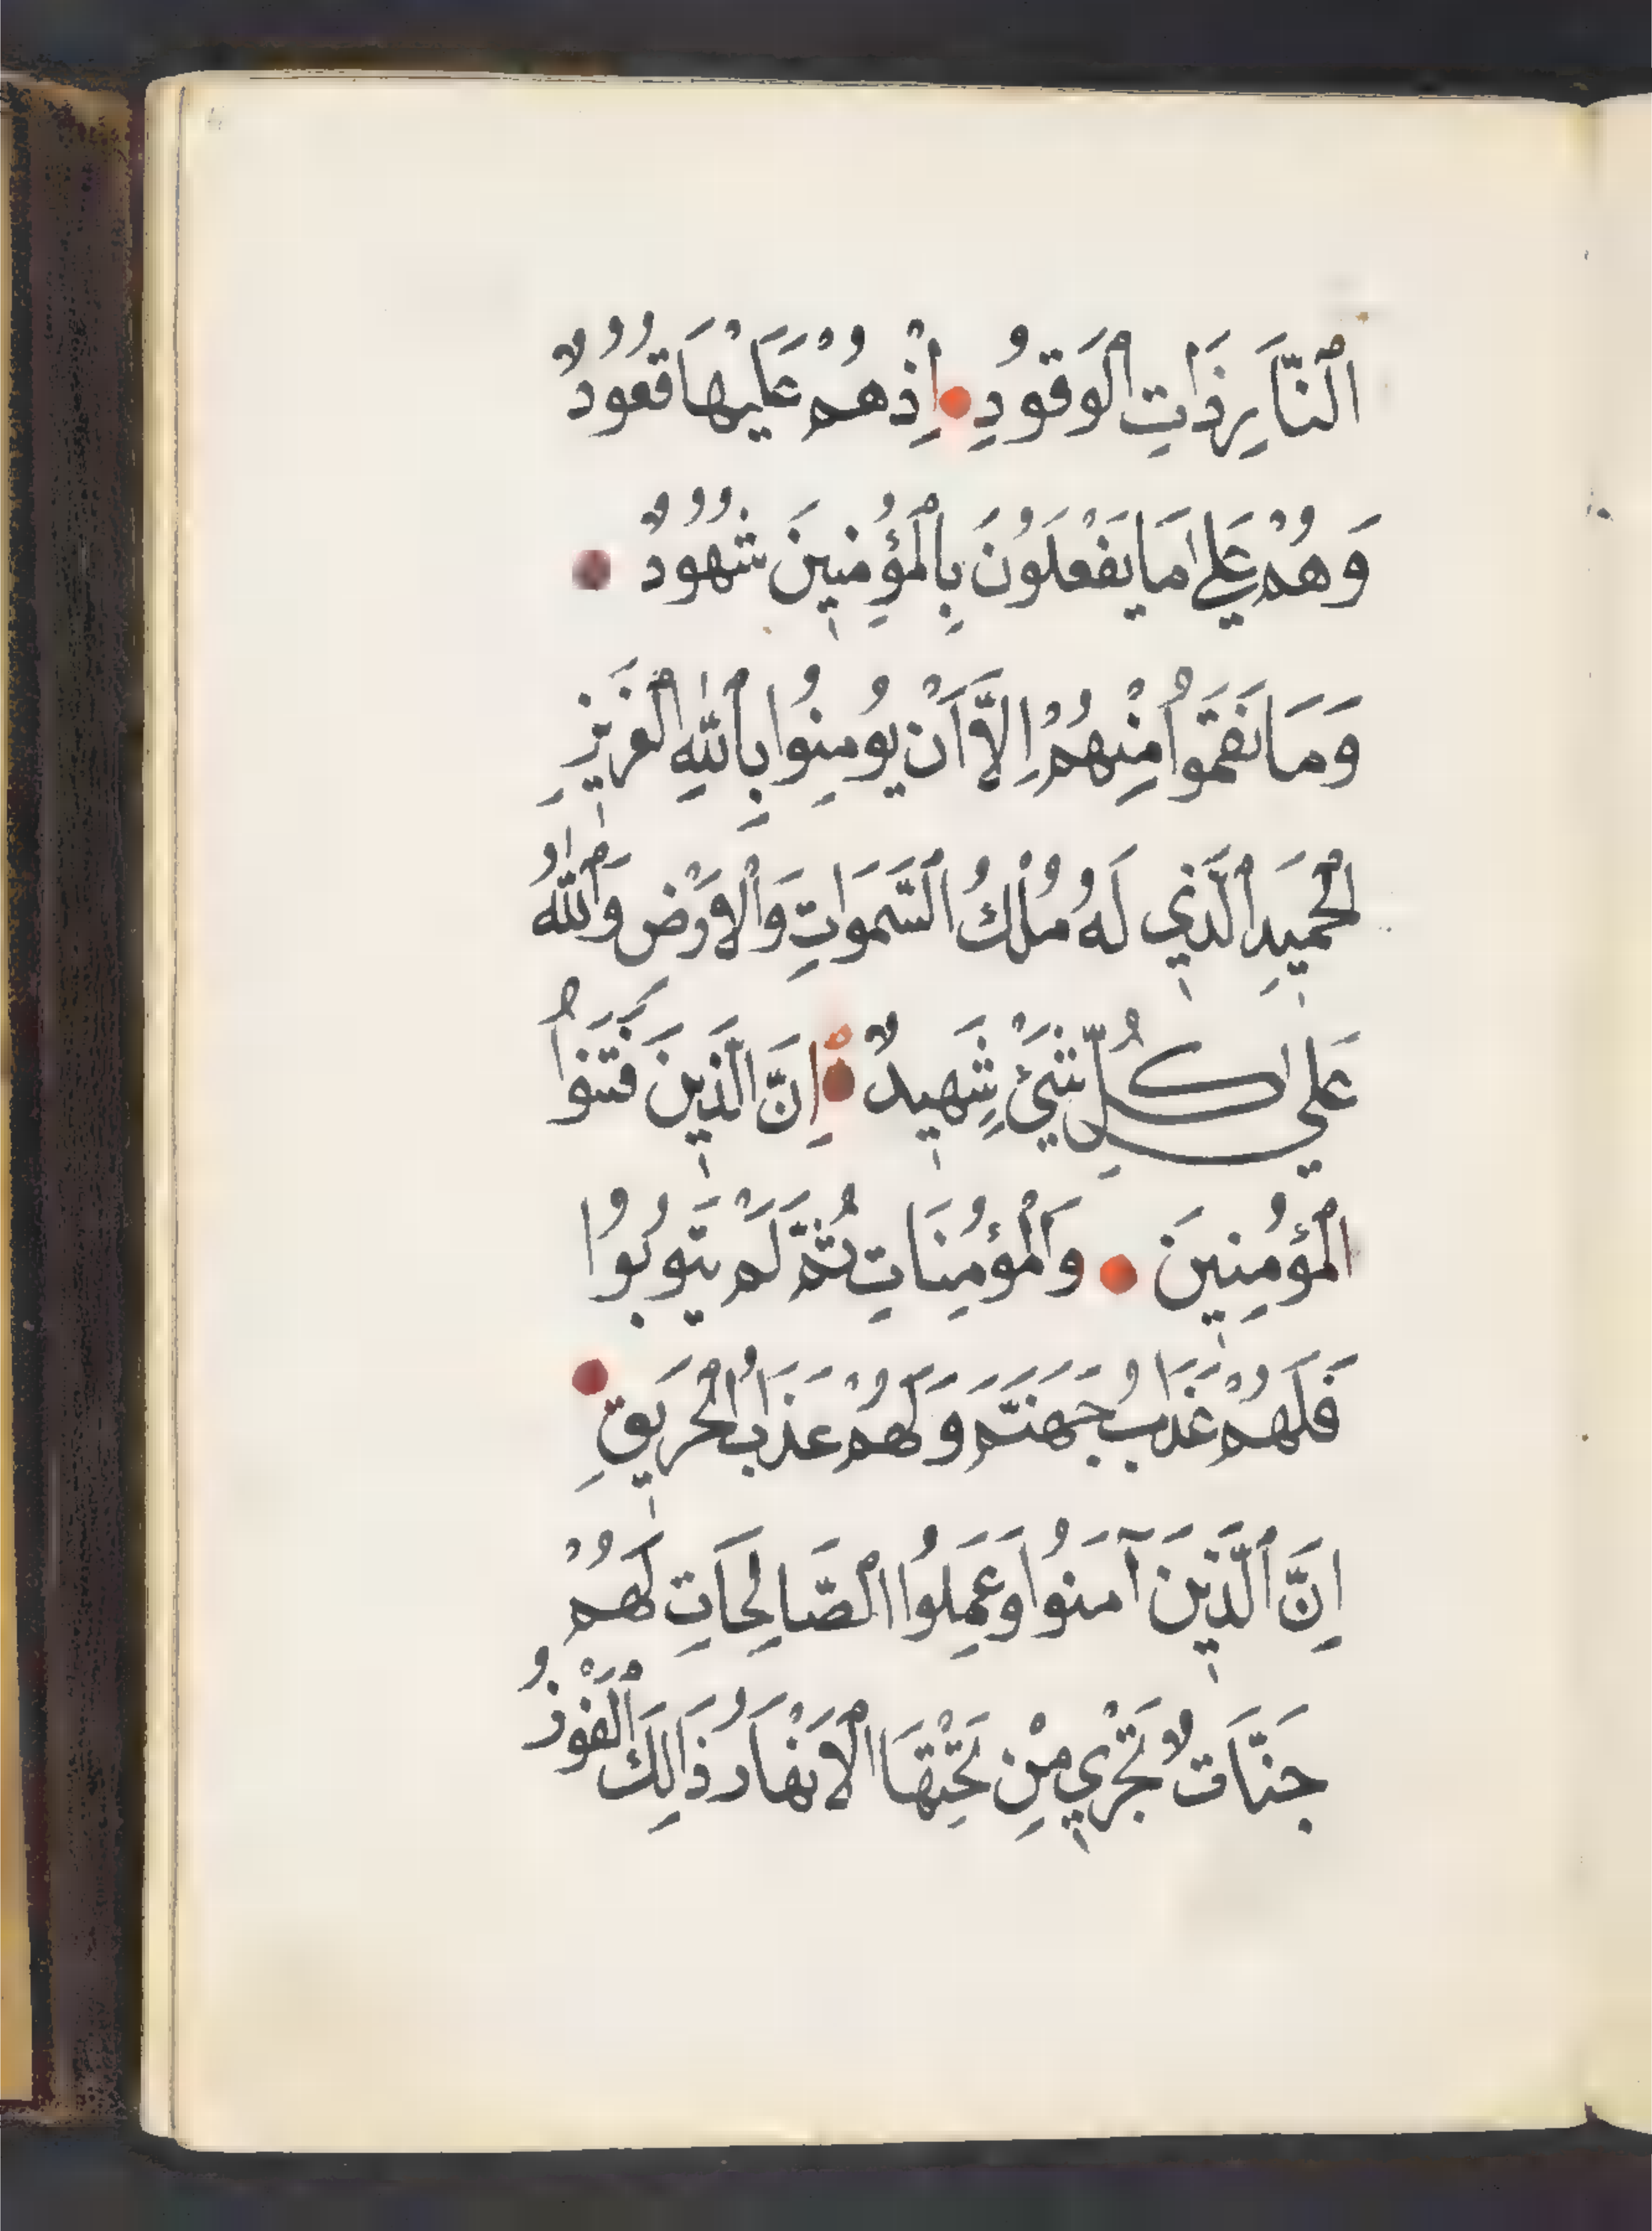 اَلنَّارِ ذَاتِ الْوَقُودِ اِذْهُمْ عَلَيْهَا قُعُودٌ
وَهُمْ عَلٰي مَا يَفْعَلُونَ بِالْمُؤْمِنِينَ شُهُودٌ
وَمَا نَقَمُوا مِنْهُمْ اِلاَّ اَنْ يُومِنُوا بِاللهِ الْعَزِيزِ
الْحَمِيدِ الَّذِي لَهُ مُلْكُ السَّمَوَاتِ وَالْاَرْضِ وَاللهُ
عَلٰي كُلِّ شَيْءٍ شَهِيدٌ اِنَّ الَّذِينَ فَتَنُوا
الْمُؤْمِنِينَ وَالْمُؤْمِنَاتِ ثُمَّ لَمْ يَتُوبُوا
فَلَهُمْ عَذَابُ جَهَنَّمَ وَلَهُمْ عَذَابُ الْحَرِيقِ
اِنَّ الَّذِينَ آمَنُوا وَعَمِلُوا الصَّالِحَاتِ لَهُمْ
جَنَّاتٌ تَجْرِي مِنْ تَحْتِهَا الْاَنْهَارُ ذَالِكَ الْفَوْزُ